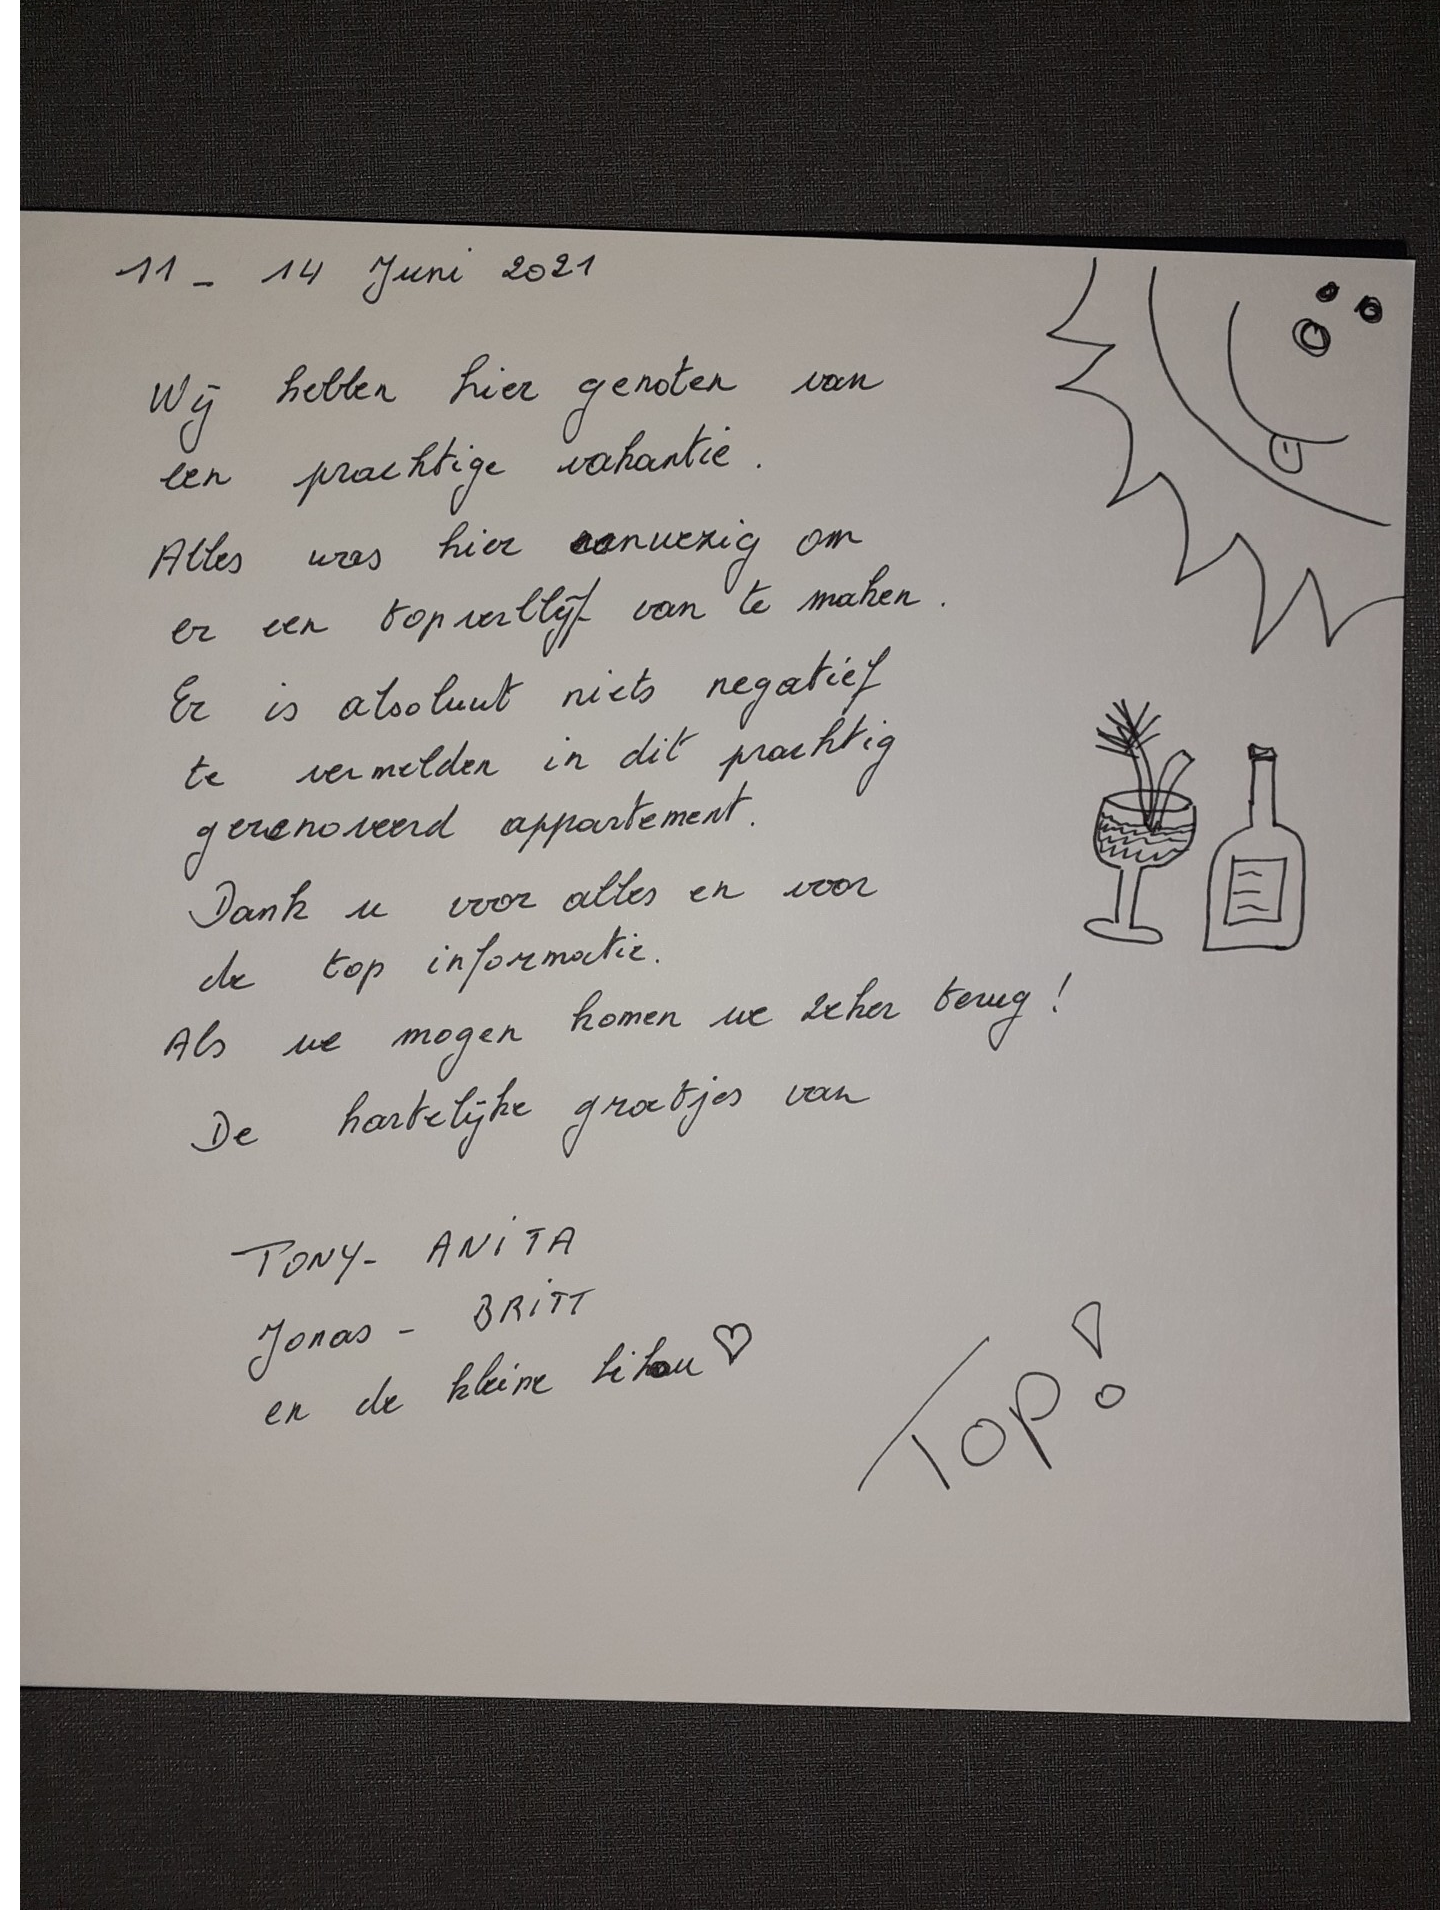 11 - 14 Juni 2021
Wij hebben hier genoten van
een prachtige vakantie.
Alles was hier aanwezig om
er een topverblijf van te maken.
Er is absoluut niets negatief
te vermelden in dit prachtig
gerenoveerd appartement.
Dank u voor alles en voor
de top informatie.
Als we mogen komen we zeker terug!
De hartelijke groetjes van
TONY- ANiTA
Jonas - BRiTT
en de kleine ♡
Top!